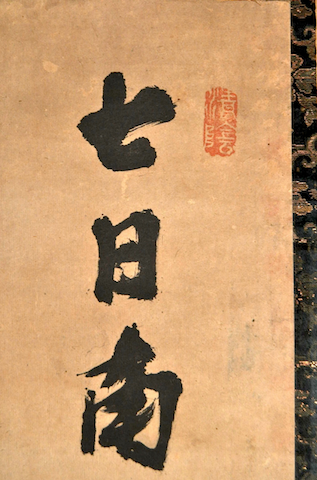 七日南